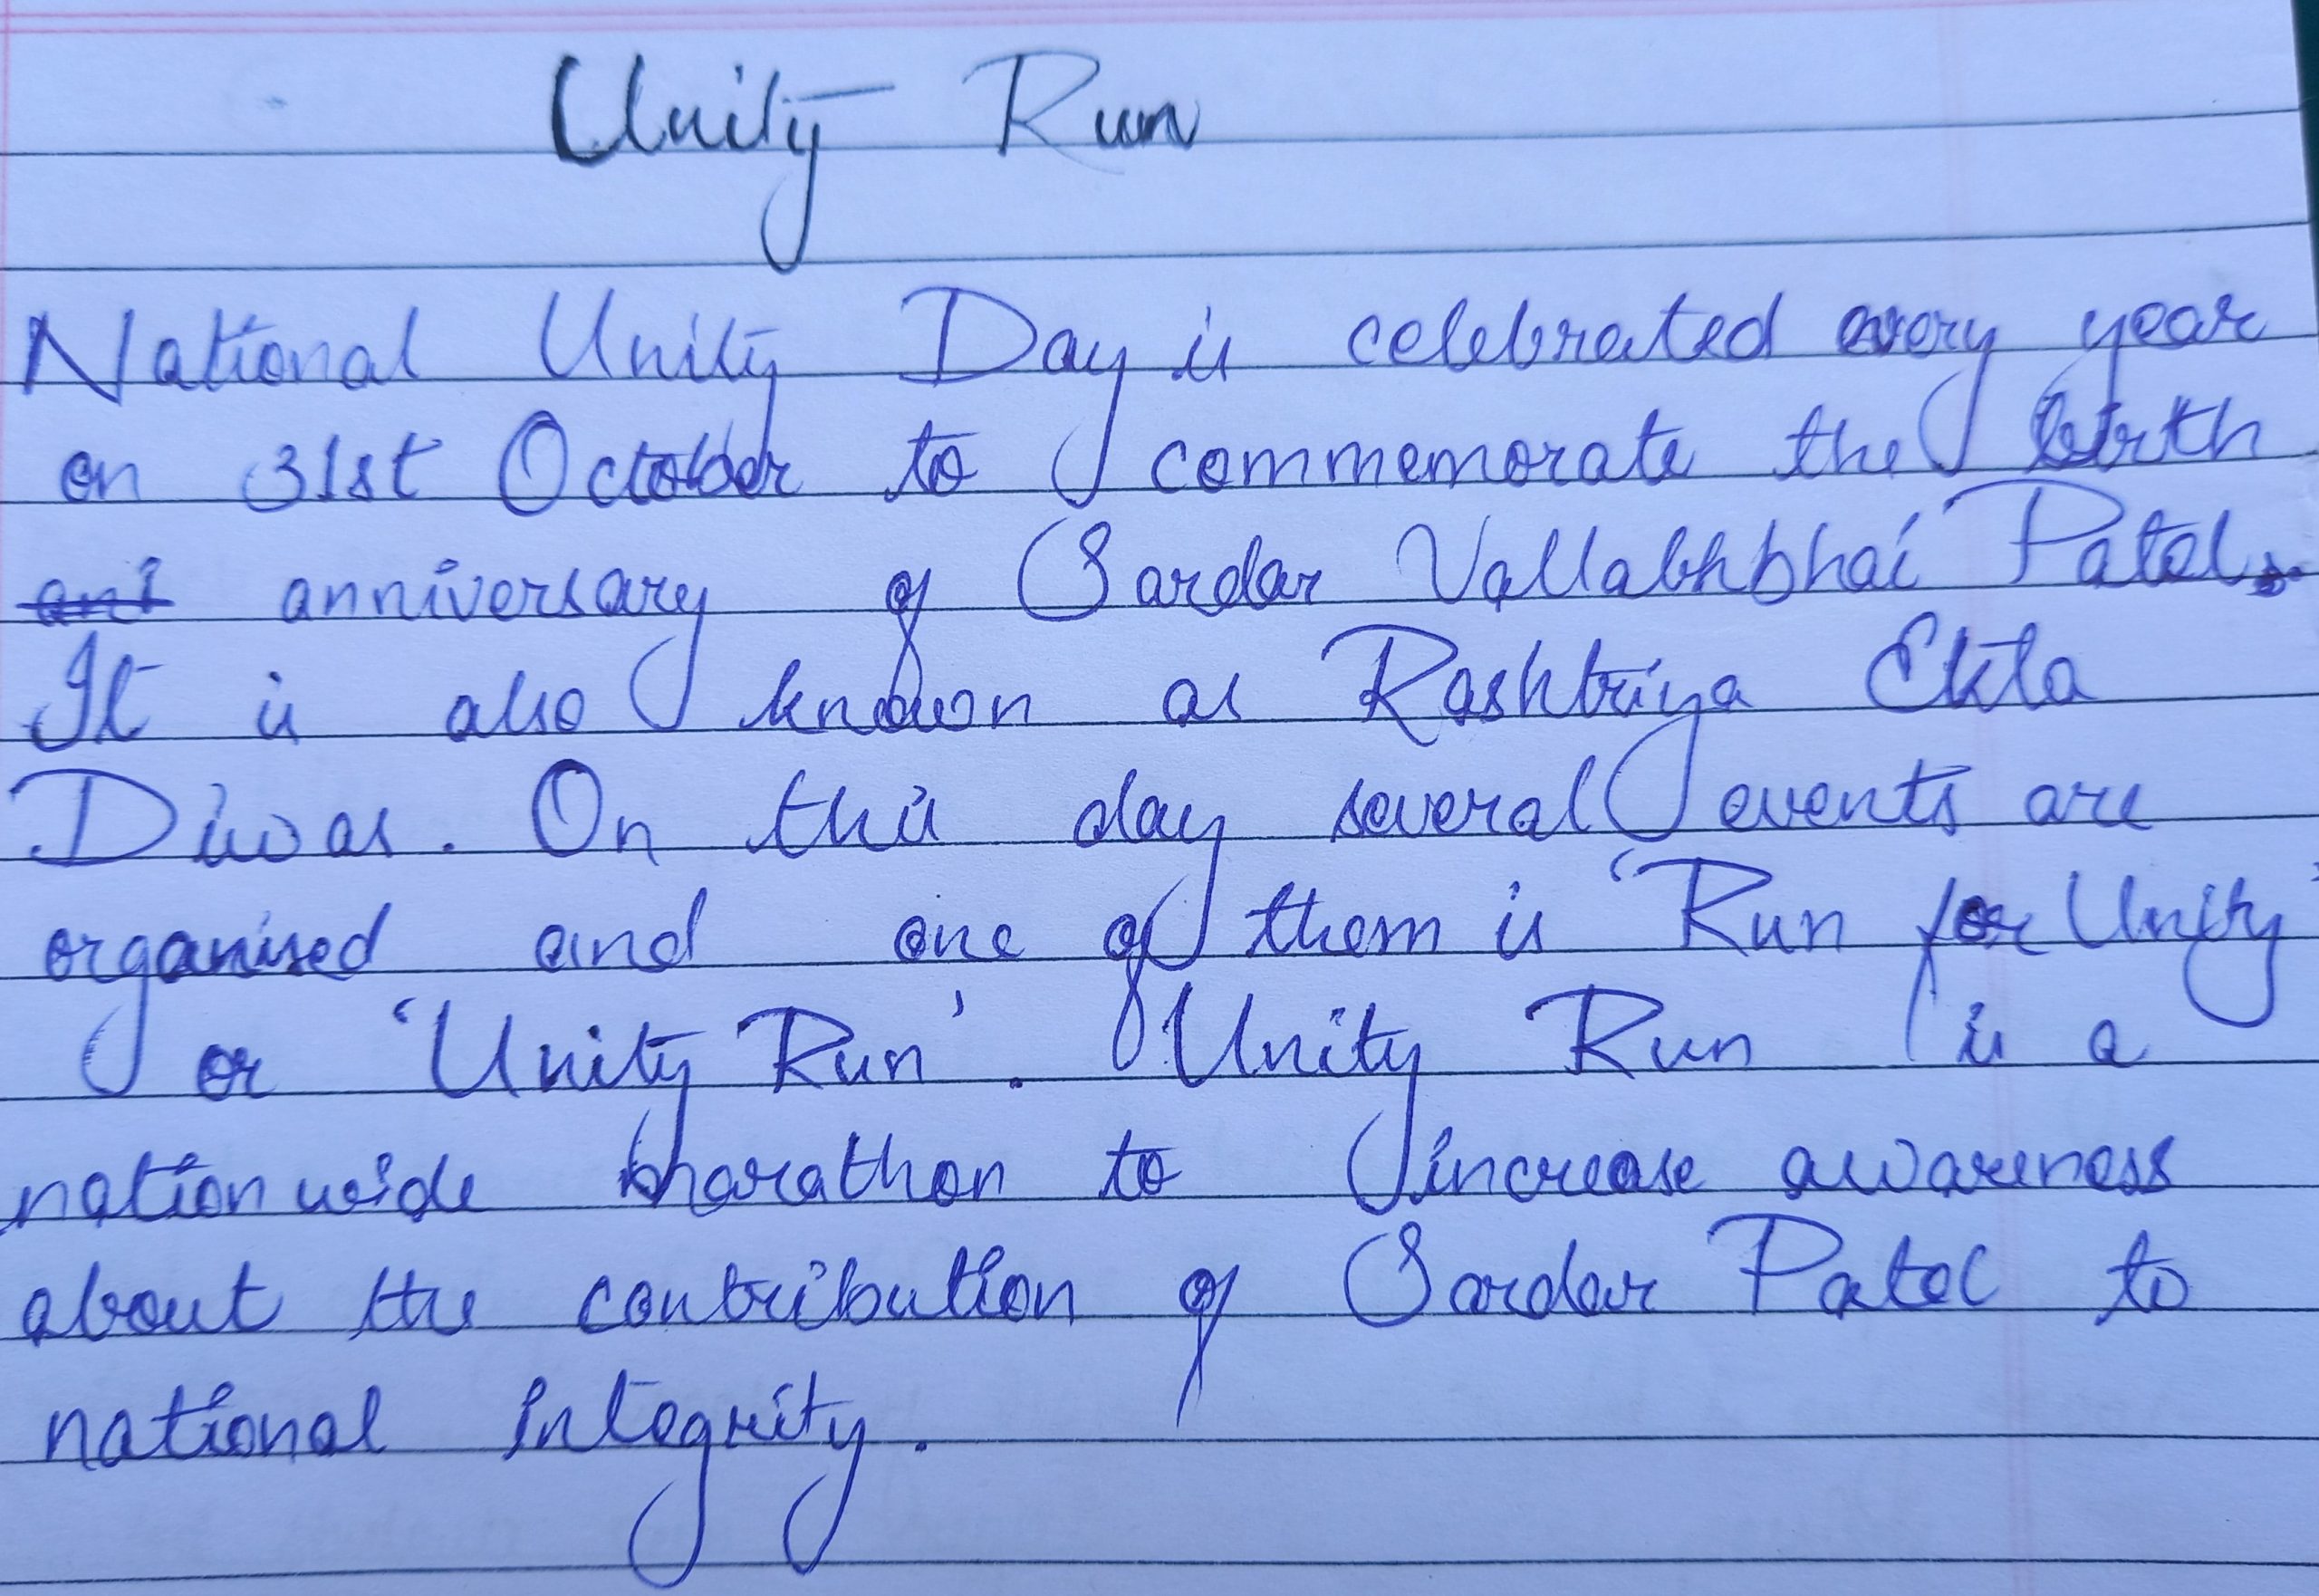 Unity Run
National Unity Day is celebrated every year
on 31st October to commemorate the birth
ani anniversary of Sardar Vallabhbhai Patel.
It is also known as Rashtriya Ekta
Diwas. On this day several events are
organised and one of them is 'Run for Unity'
or 'Unity Run'. Unity Run is a
nationwide marathon to increase awareness
about the contribution of Sardar Patel to
national integrity.